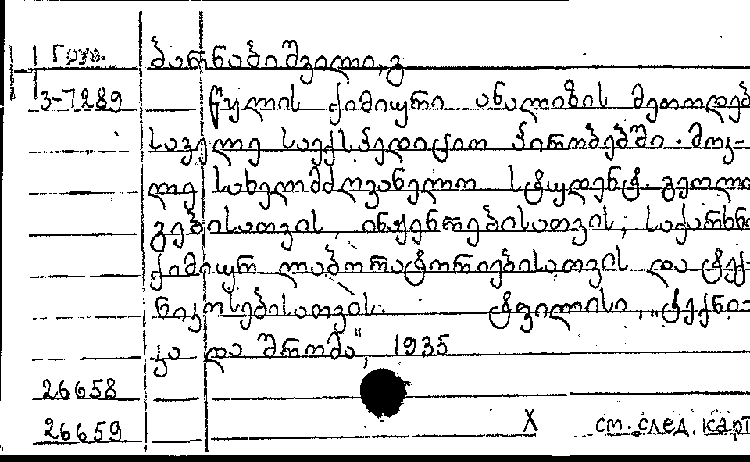 Груз. ბარნაბიშვილი, გ
3-7289 წყლის ქიმიური ანალიზის მეთოდებ
საველე საექსპედიციო პირობებში. მოკ-
ლე სახელმძღვანელო სტუდენტ გეოლო
გებისათვის, ინჟენრებისათვის, საქარხნ
ქიმიურ ლაბორატორიებისათვის და ტექ-
ნიკოსებისათვის. ტფილისი, „ტექნი-
კა და შრომა", 1935
26658
26659 X см. след. карт